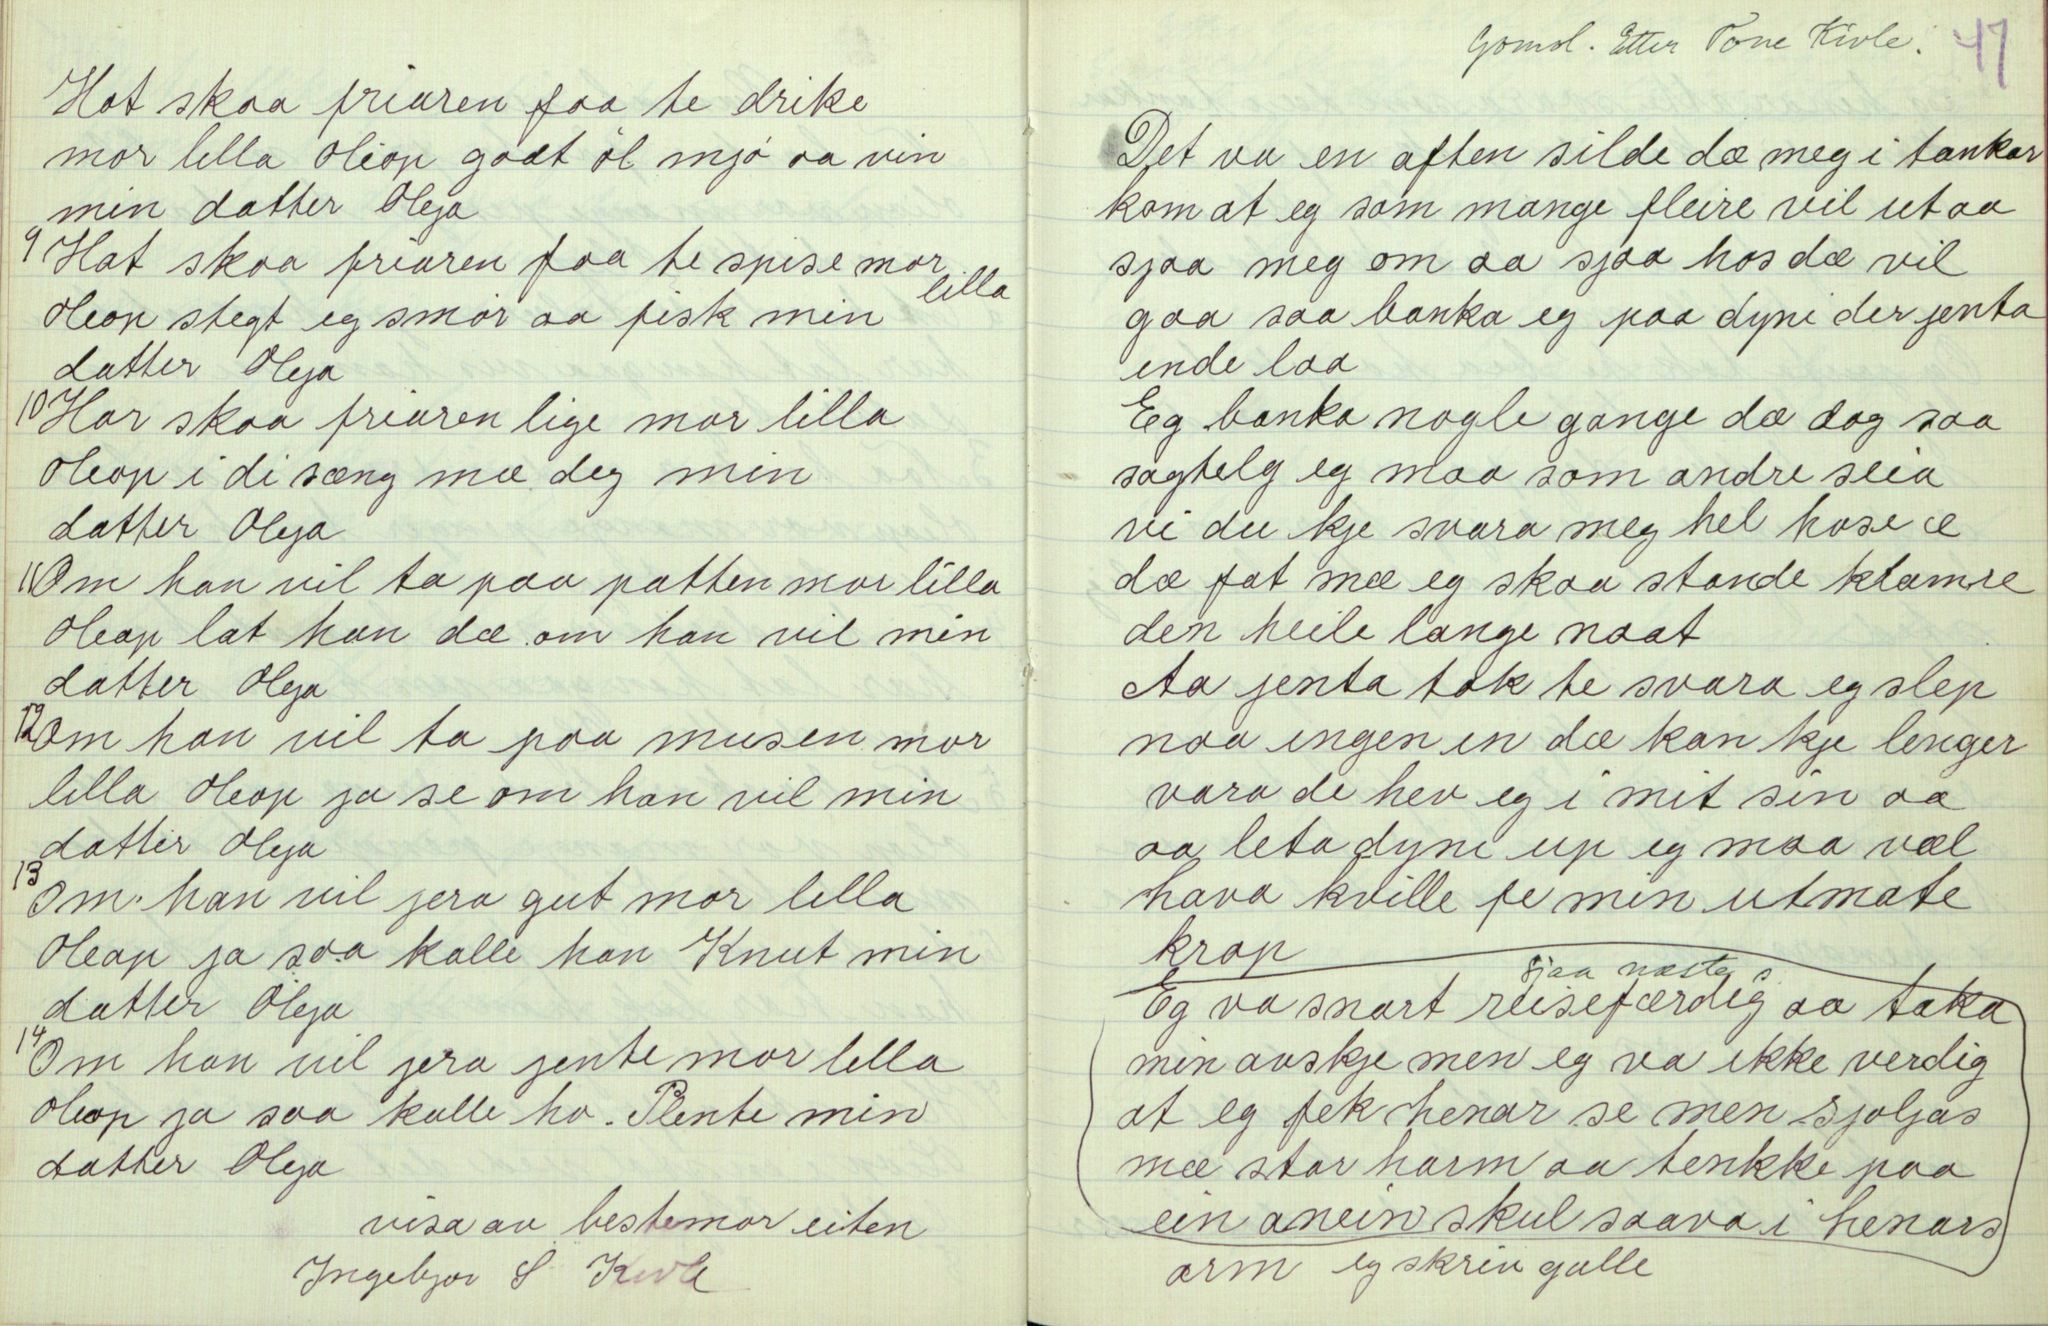 Hot skaa friaren faa te drike
mor lilla Oleop godt öl mjö aa vin
min datter Oleja
9 Hot skaa friaren faa te spise mor lilla
Oleop stegt eg smör aa fisk min
datter Oleja
10 Hor skaa friaren lige mor lilla
Oleop i di sæng mæ deg min
datter Oleja
11 Om han vil ta paa patten mor lilla
Oleop lat han dæ om han vil min
datter Oleja
12 Om han vil ta paa musen mor
lilla Oleop ja se om han vil min
datter Oleja
13 Om han vil jera gut mor lilla
Oleop ja saa kalle han Knut min
datter Oleja
14 Om han vil jera jente mor lella
Oleop ja saa kalle ho Plente min
datter Oleja
visa av bestemor eiten
Ingebjor S Kivle
Gomol. Etter Tone Kivle. 47
Det va en aften silde dæ meg i tankar
kom at eg som mange fleire vil ut aa
sjaa meg om aa sjaa hos dæ vil
gaa saa banka eg paa dyni der jenta
ende laa
Eg banka nogle gange dæ dog saa
sagtelg eg maa som andre seia
vi du kje svara meg hel hose æ
dæ fat mæ eg skaa stande klamre
den heile lange naat
Aa jenta tok te svara eg slep
naa ingen in dæ kan kje lenger
vara de hev eg i mit sin aa
aa leta dyni up eg maa væl
hava kville fe min utmate
krop
sjaa næste s
Eg va snart reisefærdig aa taka
min avskje men eg va ikke verdig
at eg fek henar se men sjoljas
mæ stor harm aa tenkke paa
ein anein skul saava i henars
arm eg skrin gulle